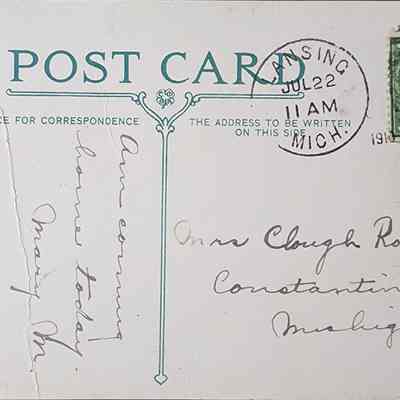 POST CARD
CE FOR CORRESPONDENCE
THE ADDRESS TO BE WRITTEN
ON THIS SIDE
ANSING
JUL 22
11 AM
MICH.
191
Am coming
home today
Mary M.
Mrs Clough Ro
Constantin
Mishig